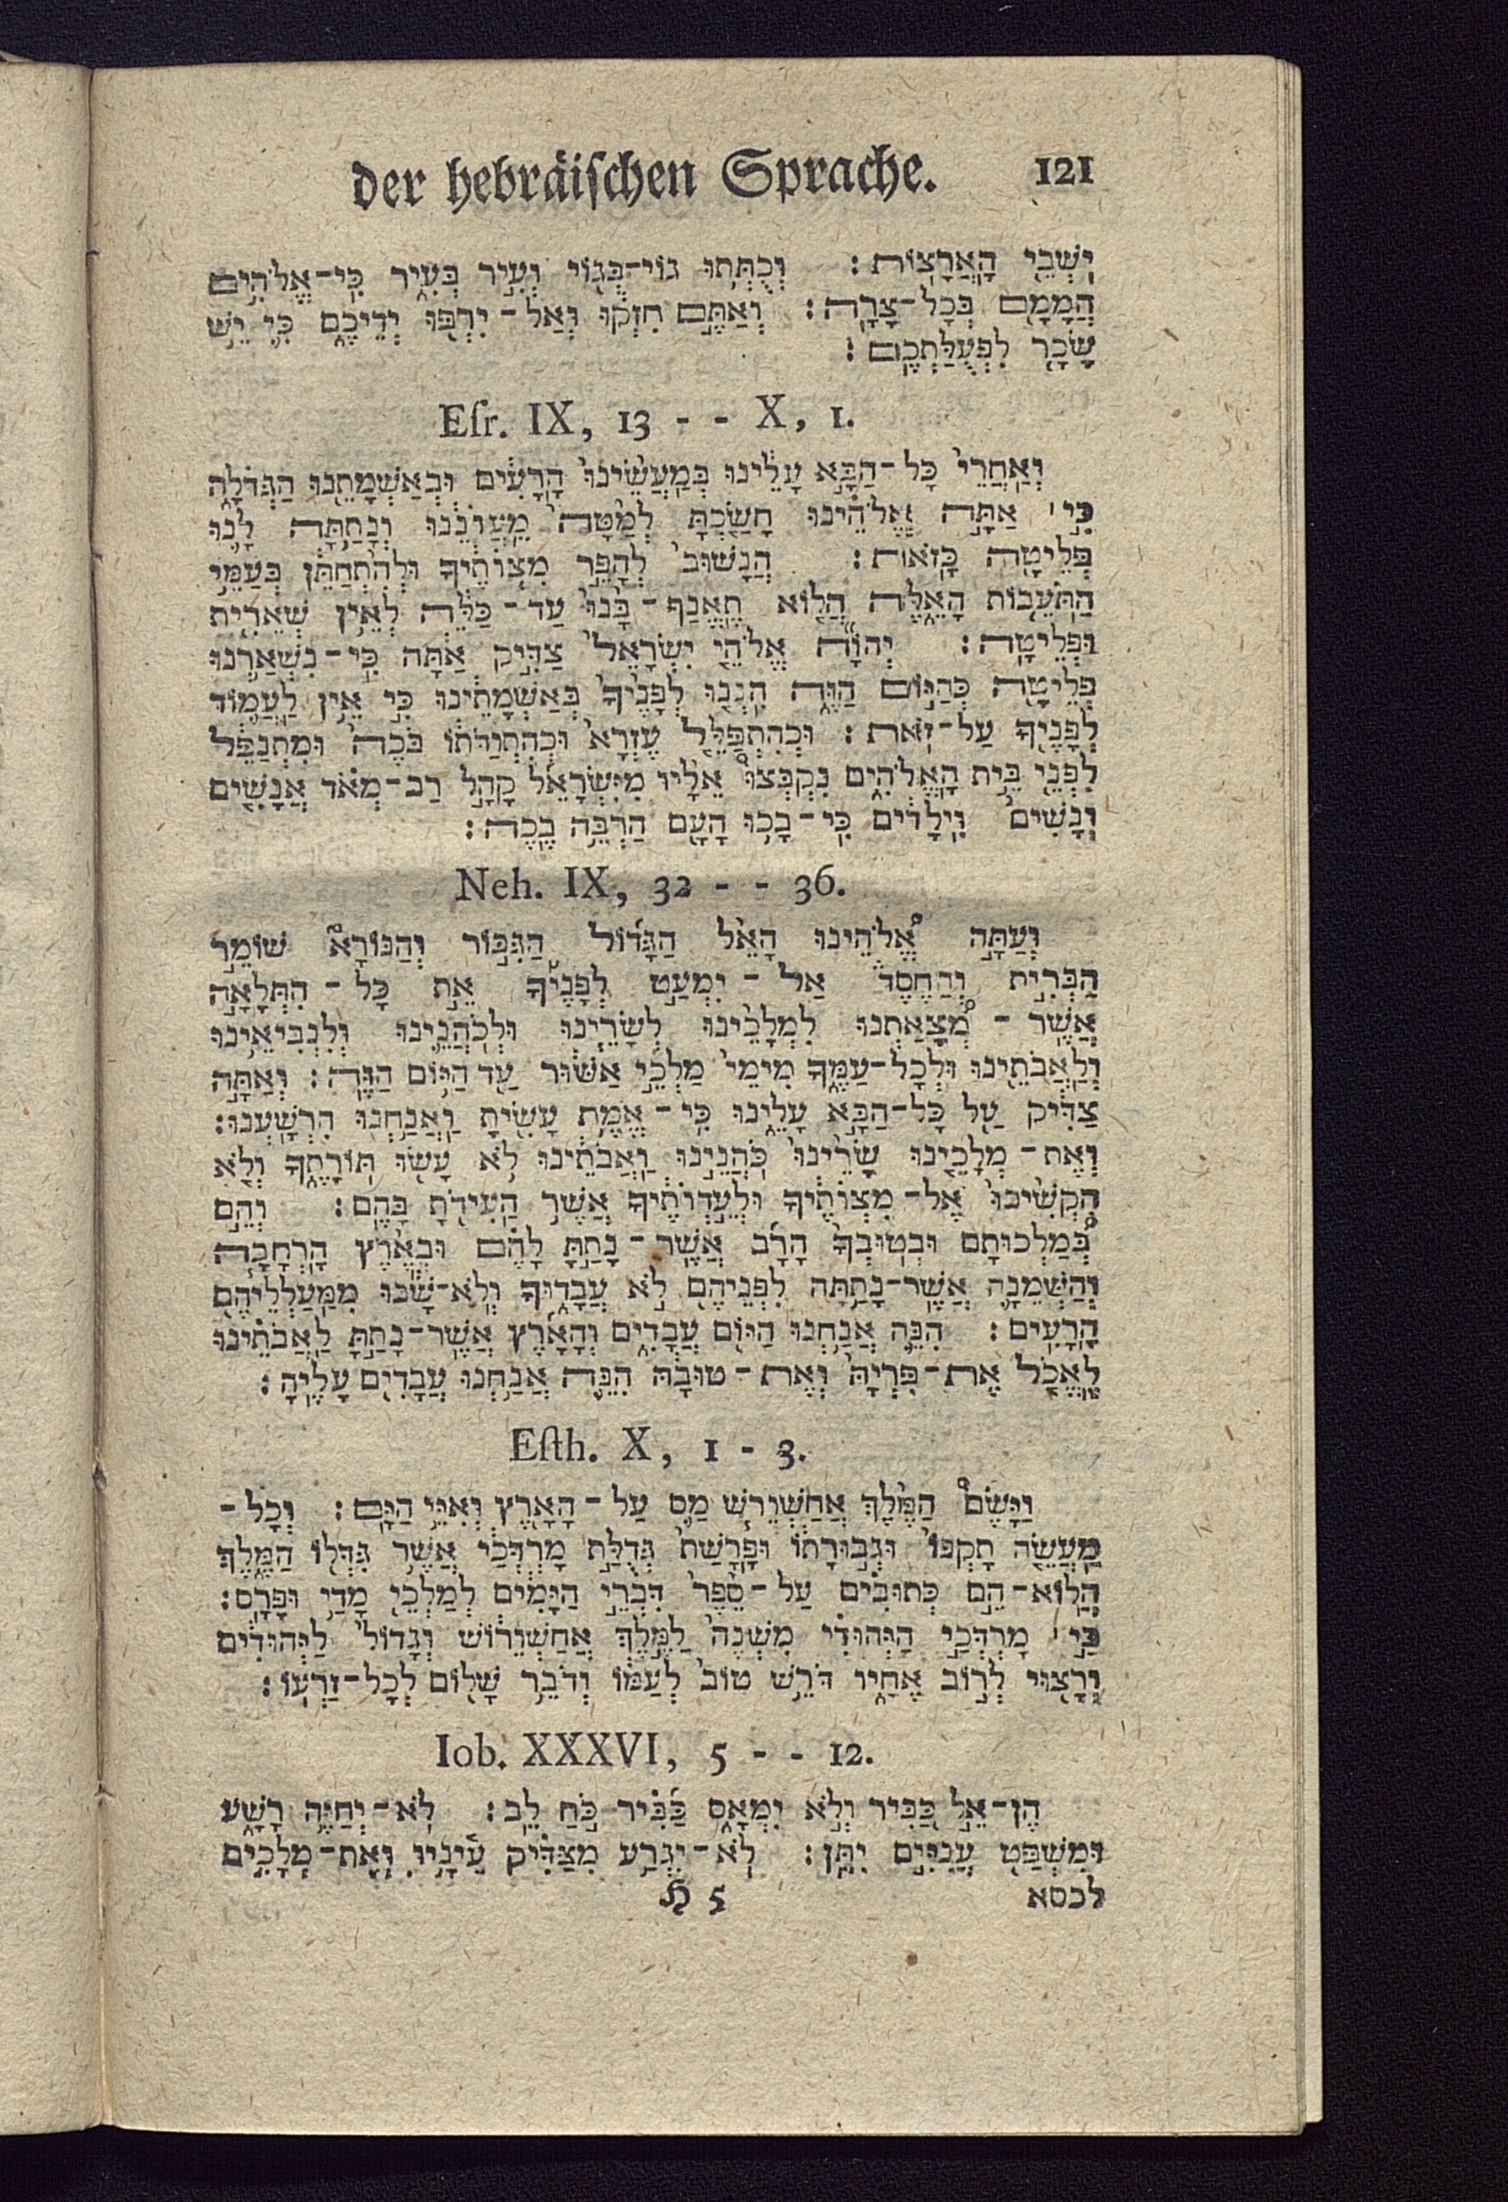 der hebräiſchen Sprache. 121
יֹשְׁבֵ֖י הָאֲרָצֽוֹת׃ וְכֻתְּת֥וּ גוֹי־בְּג֖וֹי וְעִ֣יר בְּעִ֑יר כִּֽי־אֱלֹהִ֥ים
הֲמָמָ֖ם בְּכָל־צָרָֽה׃ וְאַתֶּ֣ם חִזְק֔וּ וְאַל־יִרְפּ֖וּ יְדֵיכֶ֑ם כִּ֛י יֵ֥שׁ
שָׂכָ֖ר לִפְעֻלַּתְכֶֽם׃
Eſr. IX, 13 - - X, 1.
וְאַֽחֲרֵי֙ כָּל־הַבָּ֣א עָלֵ֔ינוּ בְּמַעֲשֵׂ֨ינוּ֙ הָרָעִ֔ים וּבְאַשְׁמָתֵ֖נוּ הַגְּדֹלָ֑ה
כִּ֣י׀ אַתָּ֣ה אֱלֹהֵ֗ינוּ חָשַׂ֤כְתָּֽ לְמַ֙טָּה֙ מֵֽעֲוֺנֵ֔נוּ וְנָתַ֥תָּה לָּ֛נוּ
פְּלֵיטָ֖ה כָּזֹֽאת׃ הֲנָשׁוּב֙ לְהָפֵ֣ר מִצְוֺתֶ֔יךָ וּ֨לְהִתְחַתֵּ֔ן בְּעַמֵּ֥י
הַתֹּעֵב֖וֹת הָאֵ֑לֶּה הֲל֤וֹא תֶֽאֱנַף־בָּ֙נוּ֙ עַד־כַּלֵּ֔ה לְאֵ֥ין שְׁאֵרִ֖ית
וּפְלֵיטָֽה׃ יְהוָ֞ה אֱלֹהֵ֤י יִשְׂרָאֵל֙ צַדִּ֣יק אַ֔תָּה כִּֽי־נִשְׁאַ֥רְנוּ
פְלֵיטָ֖ה כְּהַיּ֣וֹם הַזֶּ֑ה הִנְנ֤וּ לְפָנֶ֙יךָ֙ בְּאַשְׁמָתֵ֔ינוּ כִּ֣י אֵ֥ין לַעֲמ֛וֹד
לְפָנֶ֖יךָ עַל־זֹֽאת׃ וּכְהִתְפַּלֵּ֤ל עֶזְרָא֙ וּכְהִתְוַדֹּת֔וֹ בֹּכֶה֙ וּמִתְנַפֵּ֔ל
לִפְנֵ֖י בֵּ֣ית הָאֱלֹהִ֑ים נִקְבְּצוּ֩ אֵלָ֨יו מִיִּשְׂרָאֵ֜ל קָהָ֣ל רַב־מְאֹ֗ד אֲנָשִׁ֤ים
וְנָשִׁים֙ וִֽילָדִ֔ים כִּֽי־בָכ֥וּ הָעָ֖ם הַרְבֵּה בֶֽכֶה׃
Neh. IX, 32 - - 36.
וְעַתָּ֣ה אֱ֠לֹהֵינוּ הָאֵ֨ל הַגָּד֜וֹל הַגִּבּ֣וֹר וְהַנּוֹרָא֮ שׁוֹמֵ֣ר
הַבְּרִ֣ית וְהַחֶסֶד֒ אַל־יִמְעַ֣ט לְפָנֶ֡יךָ אֵ֣ת כָּל־הַתְּלָאָ֣ה
אֲֽשֶׁר־מְ֠צָאַתְנוּ לִמְלָכֵ֨ינוּ לְשָׂרֵ֧ינוּ וּלְכֹהֲנֵ֛ינוּ וְלִנְבִיאֵ֥ינוּ
וְלַאֲבֹתֵ֖ינוּ וּלְכָל־עַמֶּ֑ךָ מִימֵי֙ מַלְכֵ֣י אַשּׁ֔וּר עַ֖ד הַיּ֥וֹם הַזֶּֽה׃ וְאַתָּ֣ה
צַדִּ֔יק עַ֖ל כָּל־הַבָּ֣א עָלֵ֑ינוּ כִּֽי־אֱמֶ֥ת עָשִׂ֖יתָ וַאֲנַ֥חְנוּ הִרְשָֽׁעְנוּ׃
וְאֶת־מְלָכֵ֤ינוּ שָׂרֵ֙ינוּ֙ כֹּהֲנֵ֣ינוּ וַאֲבֹתֵ֔ינוּ לֹ֥א עָשׂ֖וּ תּוֹרָתֶ֑ךָ וְלֹ֤א
הִקְשִׁ֙יבוּ֙ אֶל־מִצְוֺתֶ֔יךָ וּלְעֵ֣דְוֺתֶ֔יךָ אֲשֶׁ֥ר הַעִידֹ֖תָ בָּהֶֽם׃ וְהֵ֣ם
בְּמַלְכוּתָם֩ וּבְטוּבְךָ֨ הָרָ֜ב אֲשֶׁר־נָתַ֣תָּ לָהֶ֗ם וּבְאֶ֨רֶץ הָרְחָבָ֧ה
וְהַשְּׁמֵנָ֛ה אֲשֶׁר־נָתַ֥תָּה לִפְנֵיהֶ֖ם לֹ֣א עֲבָד֑וּךָ וְֽלֹא־שָׁ֔בוּ מִמַּֽעַלְלֵיהֶ֖ם
הָרָעִֽים׃ הִנֵּ֛ה אֲנַ֥חְנוּ הַיּ֖וֹם עֲבָדִ֑ים וְהָאָ֜רֶץ אֲשֶׁר־נָתַ֣תָּ לַאֲבֹתֵ֗ינוּ
לֶאֱכֹ֤ל אֶת־פִּרְיָהּ֙ וְאֶת־טוּבָ֔הּ הִנֵּ֛ה אֲנַ֥חְנוּ עֲבָדִ֖ים עָלֶֽיהָ׃
Eſth. X, 1 - 3.
וַיָּשֶׂם֩ הַמֶּ֨לֶךְ אֲחַשְׁוֵר֧שׁ מַ֛ס עַל־הָאָ֖רֶץ וְאִיֵּ֥י הַיָּֽם׃ וְכָל־
מַעֲשֵׂ֤ה תָקְפּוֹ֙ וּגְב֣וּרָת֔וֹ וּפָרָשַׁת֙ גְּדֻלַּ֣ת מָרְדְּכַ֔י אֲשֶׁ֥ר גִּדְּל֖וֹ הַמֶּ֑לֶךְ
הֲלוֹא־הֵ֣ם כְּתוּבִ֗ים עַל־סֵ֙פֶר֙ דִּבְרֵ֣י הַיָּמִ֔ים לְמַלְכֵ֖י מָדַ֥י וּפָרָֽס׃
כִּ֣י׀ מָרְדְּכַ֣י הַיְּהוּדִ֗י מִשְׁנֶה֙ לַמֶּ֣לֶךְ אֲחַשְׁוֵר֔וֹשׁ וְגָדוֹל֙ לַיְּהוּדִ֔ים
וְרָצ֖וּי לְר֣וֹב אֶחָ֑יו דֹּרֵ֥שׁ טוֹב֙ לְעַמּ֔וֹ וְדֹבֵ֥ר שָׁל֖וֹם לְכָל־זַרְעֽוֹ׃
Iob. XXXVI, 5 - - 12.
הֶן־אֵ֣ל כַּ֭בִּיר וְלֹ֣א יִמְאָ֑ס כַּ֝בִּ֗יר כֹּ֣חַ לֵֽב׃ לֹא־יְחַיֶּ֥ה רָשָׁ֑ע
וּמִשְׁפַּ֖ט עֲנִיִּ֣ים יִתֵּֽן׃ לֹֽא־יִגְרַ֥ע מִצַּדִּ֗יק עֵ֫ינָ֥יו וְאֶת־מְלָכִ֥ים
H 5 לכסא